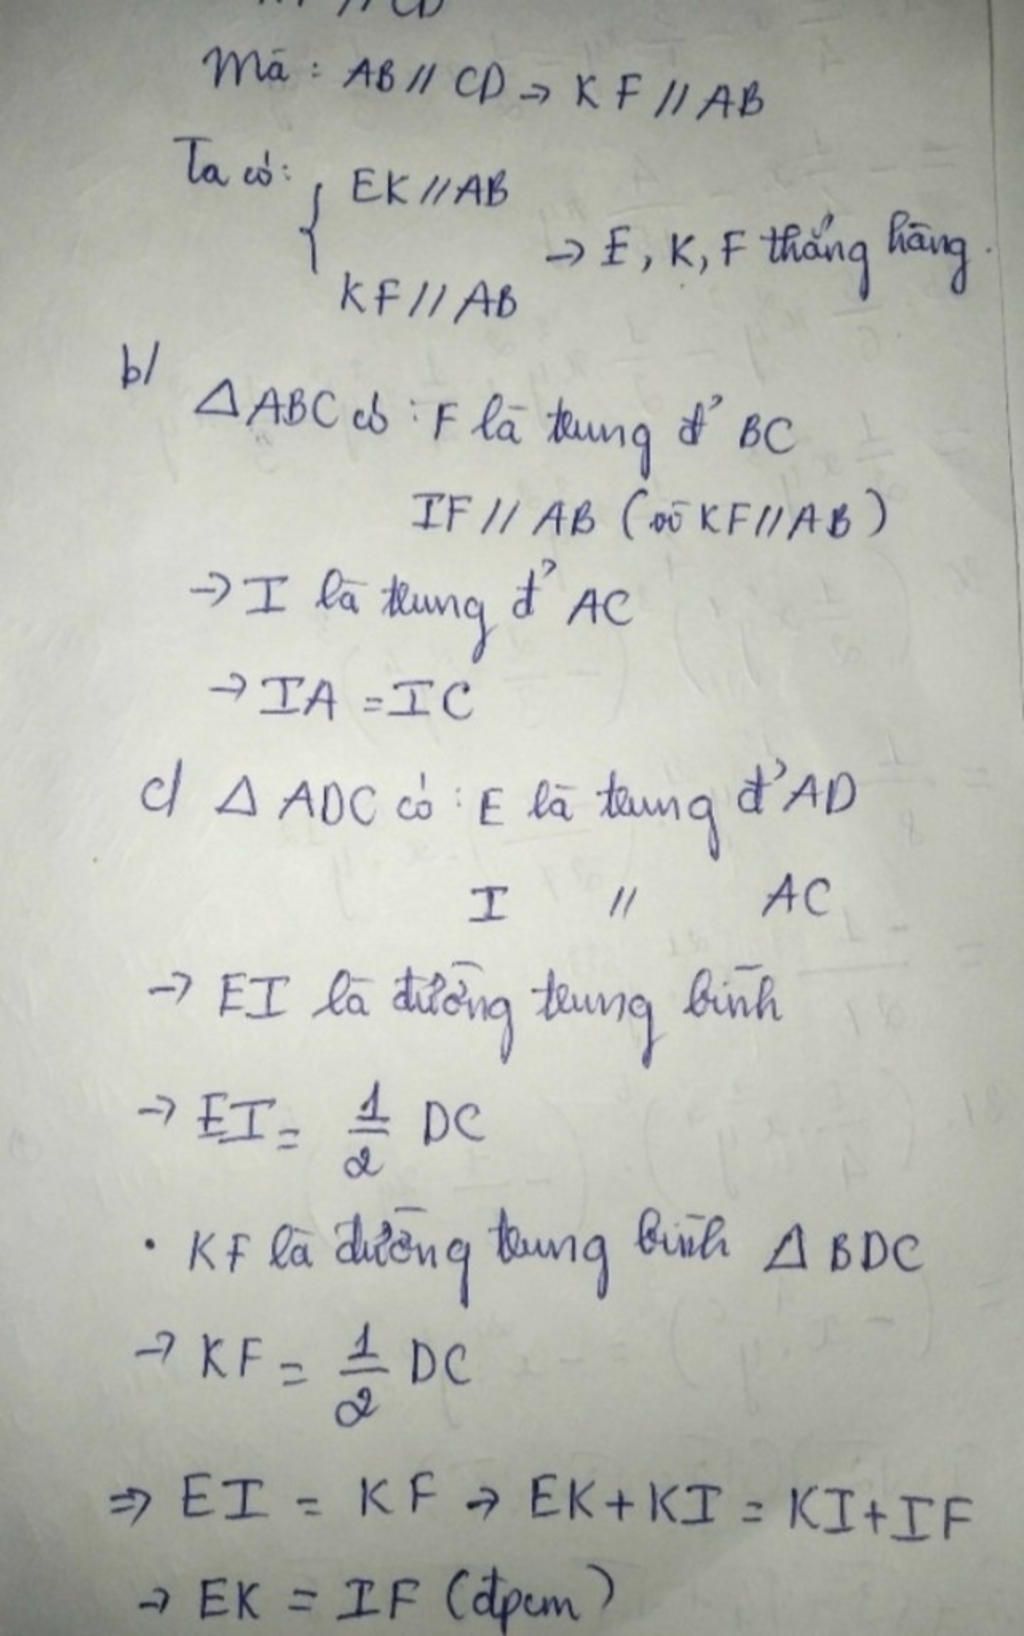 // CD
Mà : AB // CD → KF // AB
Ta có:
{ EK // AB
→ E, K, F thẳng hàng.
KF // AB
b/
△ ABC có : F là trung đ' BC
IF // AB (vì KF // AB)
→ I là trung đ' AC
→ IA = IC
c/ △ ADC có : E là trung đ' AD
I // AC
→ EI là đường trung bình
→ EI = 1/2 DC
• KF là đường trung bình △ BDC
→ KF = 1/2 DC
⇒ EI = KF → EK + KI = KI + IF
→ EK = IF (đpcm)